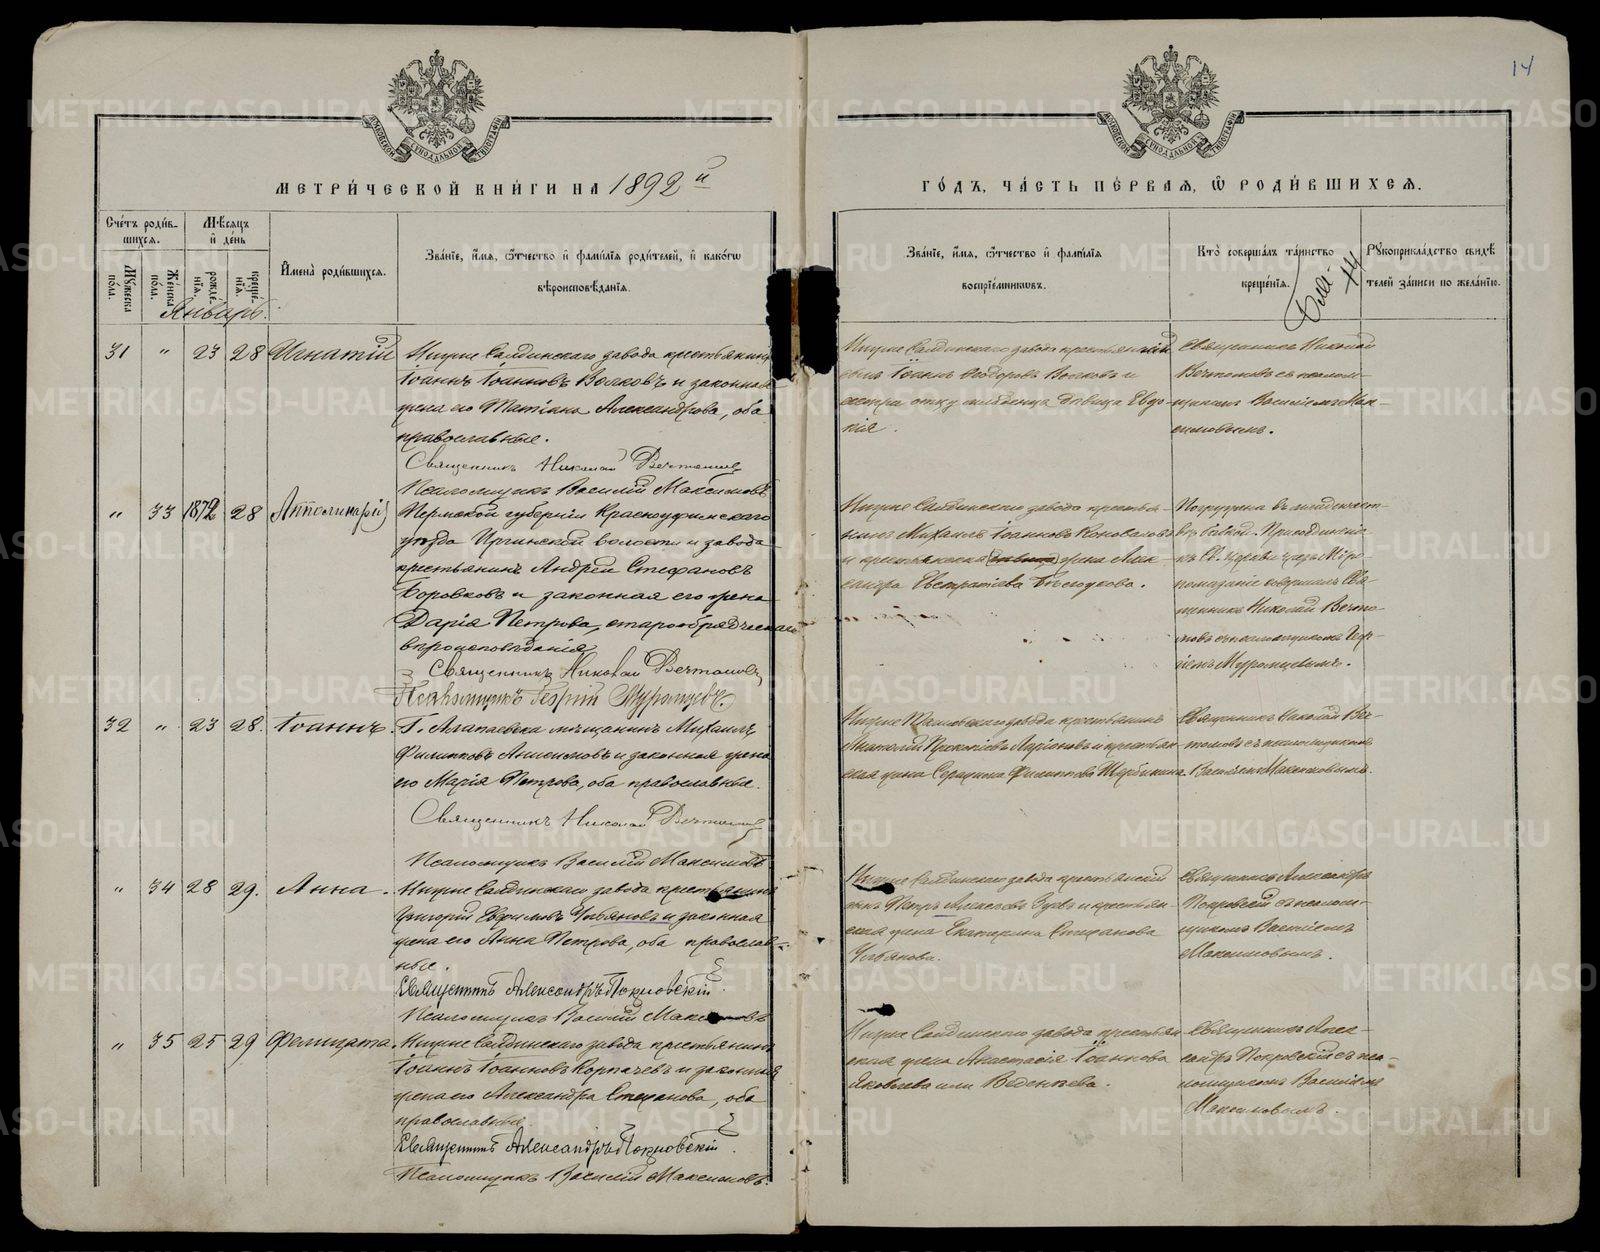 14
МЕТРИ́ЧЕСКОЙ КНИ́ГИ НА 1892 й
ГО́ДЪ, ЧА́СТЬ ПЕ́РВАЯ, Ѽ РОДИ́ВШИХСЯ.
Сче́тъ роди́вшихся.
Мѣ́сяцъ и́ де́нь
Мꙋ́жеска по́ла.
Же́нска по́ла.
рожде́нїѧ.
креще́нїѧ.
И҆мена̀ роди́вшихся.
Зва́нїе, и҆́мя, ѻ҆́тчество и҆ фамилїя роди́телей, и҆ како́гѡ вѣроисповѣ́данїя.
Зва́нїе, и҆́мя, ѻ҆́тчество и҆ фами́лїя воспрїе́мникѡвъ.
Кто̀ соверша́лъ та́инство креще́нїя.
Рꙋкоприкла́дство свидѣ́телей за́писи по жела́нїю.
Январь.
31 " 23 28 Игнатій
Нижне Салдинскаго завода крестьянинъ
Іоаннъ Іоанновъ Волковъ и законная
жена его Татіана Александрова, оба
православные.
Священникъ Николай
Псаломщикъ Василій Максимовъ
Нижне Салдинскаго завода крестьянскій
сынъ Іоаннъ Ѳеодоровъ Волковъ и
сестра отцу младенца девица Евдо-
кія.
Священникъ Николай
съ псалом-
щикомъ Василіемъ Мак-
симовымъ.
" 33 1872 28
Пермской губерніи Красноуфимскаго
уѣзда Иргинской волости и завода
крестьянинъ Андрей Стефановъ
Боровковъ и законная его жена
Дарія Петрова, старообрядческаго
вѣроисповѣданія
Священникъ Николай
Псаломщикъ Георгій Муромцевъ.
Нижне Салдинскаго завода крестья-
нинъ Михаилъ Іоанновъ Коновалов
и крестьянская жена Алек-
сандра Евстратіева
Погружена въ младенчест-
вѣ бабкой. Присоединеніе
къ Св. Церкви чрезъ Мѵро-
помазаніе совершилъ Свя-
щенникъ Николай
съ псаломщикомъ Геор-
гіемъ Муромцевымъ.
32 " 23 28. Іоаннъ.
Г. Алапаевска мѣщанинъ Михаилъ
Филипповъ Анисимовъ и законная жена
его Марія Петрова, оба православные.
Священникъ Николай
Псаломщикъ Василій Максимовъ
завода крестьянинъ
Анатолій Прокопіевъ Ларіоновъ и крестьян-
ская жена Филиппова Щербинина
Священникъ Николай
съ псаломщикомъ
Василіемъ Максимовымъ.
" 34 28 29. Анна.
Нижне Салдинскаго завода крестьянинъ
Григорій Евфимовъ Устьяновъ и законная
жена его Анна Петрова, оба православ-
ные.
Священникъ Александръ Покровскій
Псаломщикъ Василій Максимовъ
Нижне Салдинскаго завода крестьянскій
сынъ Петръ Алексѣевъ Зуевъ и крестьян-
ская жена Екатерина Стефанова
Устьянова.
Священникъ Александръ
Покровскій съ псалом-
щикомъ Василіемъ
Максимовымъ.
" 35 25 29 Фелицата.
Нижне Салдинскаго завода крестьянинъ
Іоаннъ Іоанновъ Корпачевъ и законная
жена его Александра Стефанова, оба
православные.
Священникъ Александръ Покровскій
Псаломщикъ Василій Максимовъ.
Нижне Салдинскаго завода крестьян-
ская жена Анастасія Іоаннова
Яковлева или Веденѣева.
Священникъ Алек-
сандръ Покровскій съ пса-
ломщикомъ Василіемъ
Максимовымъ.
METRIKI.GASO-URAL.RU